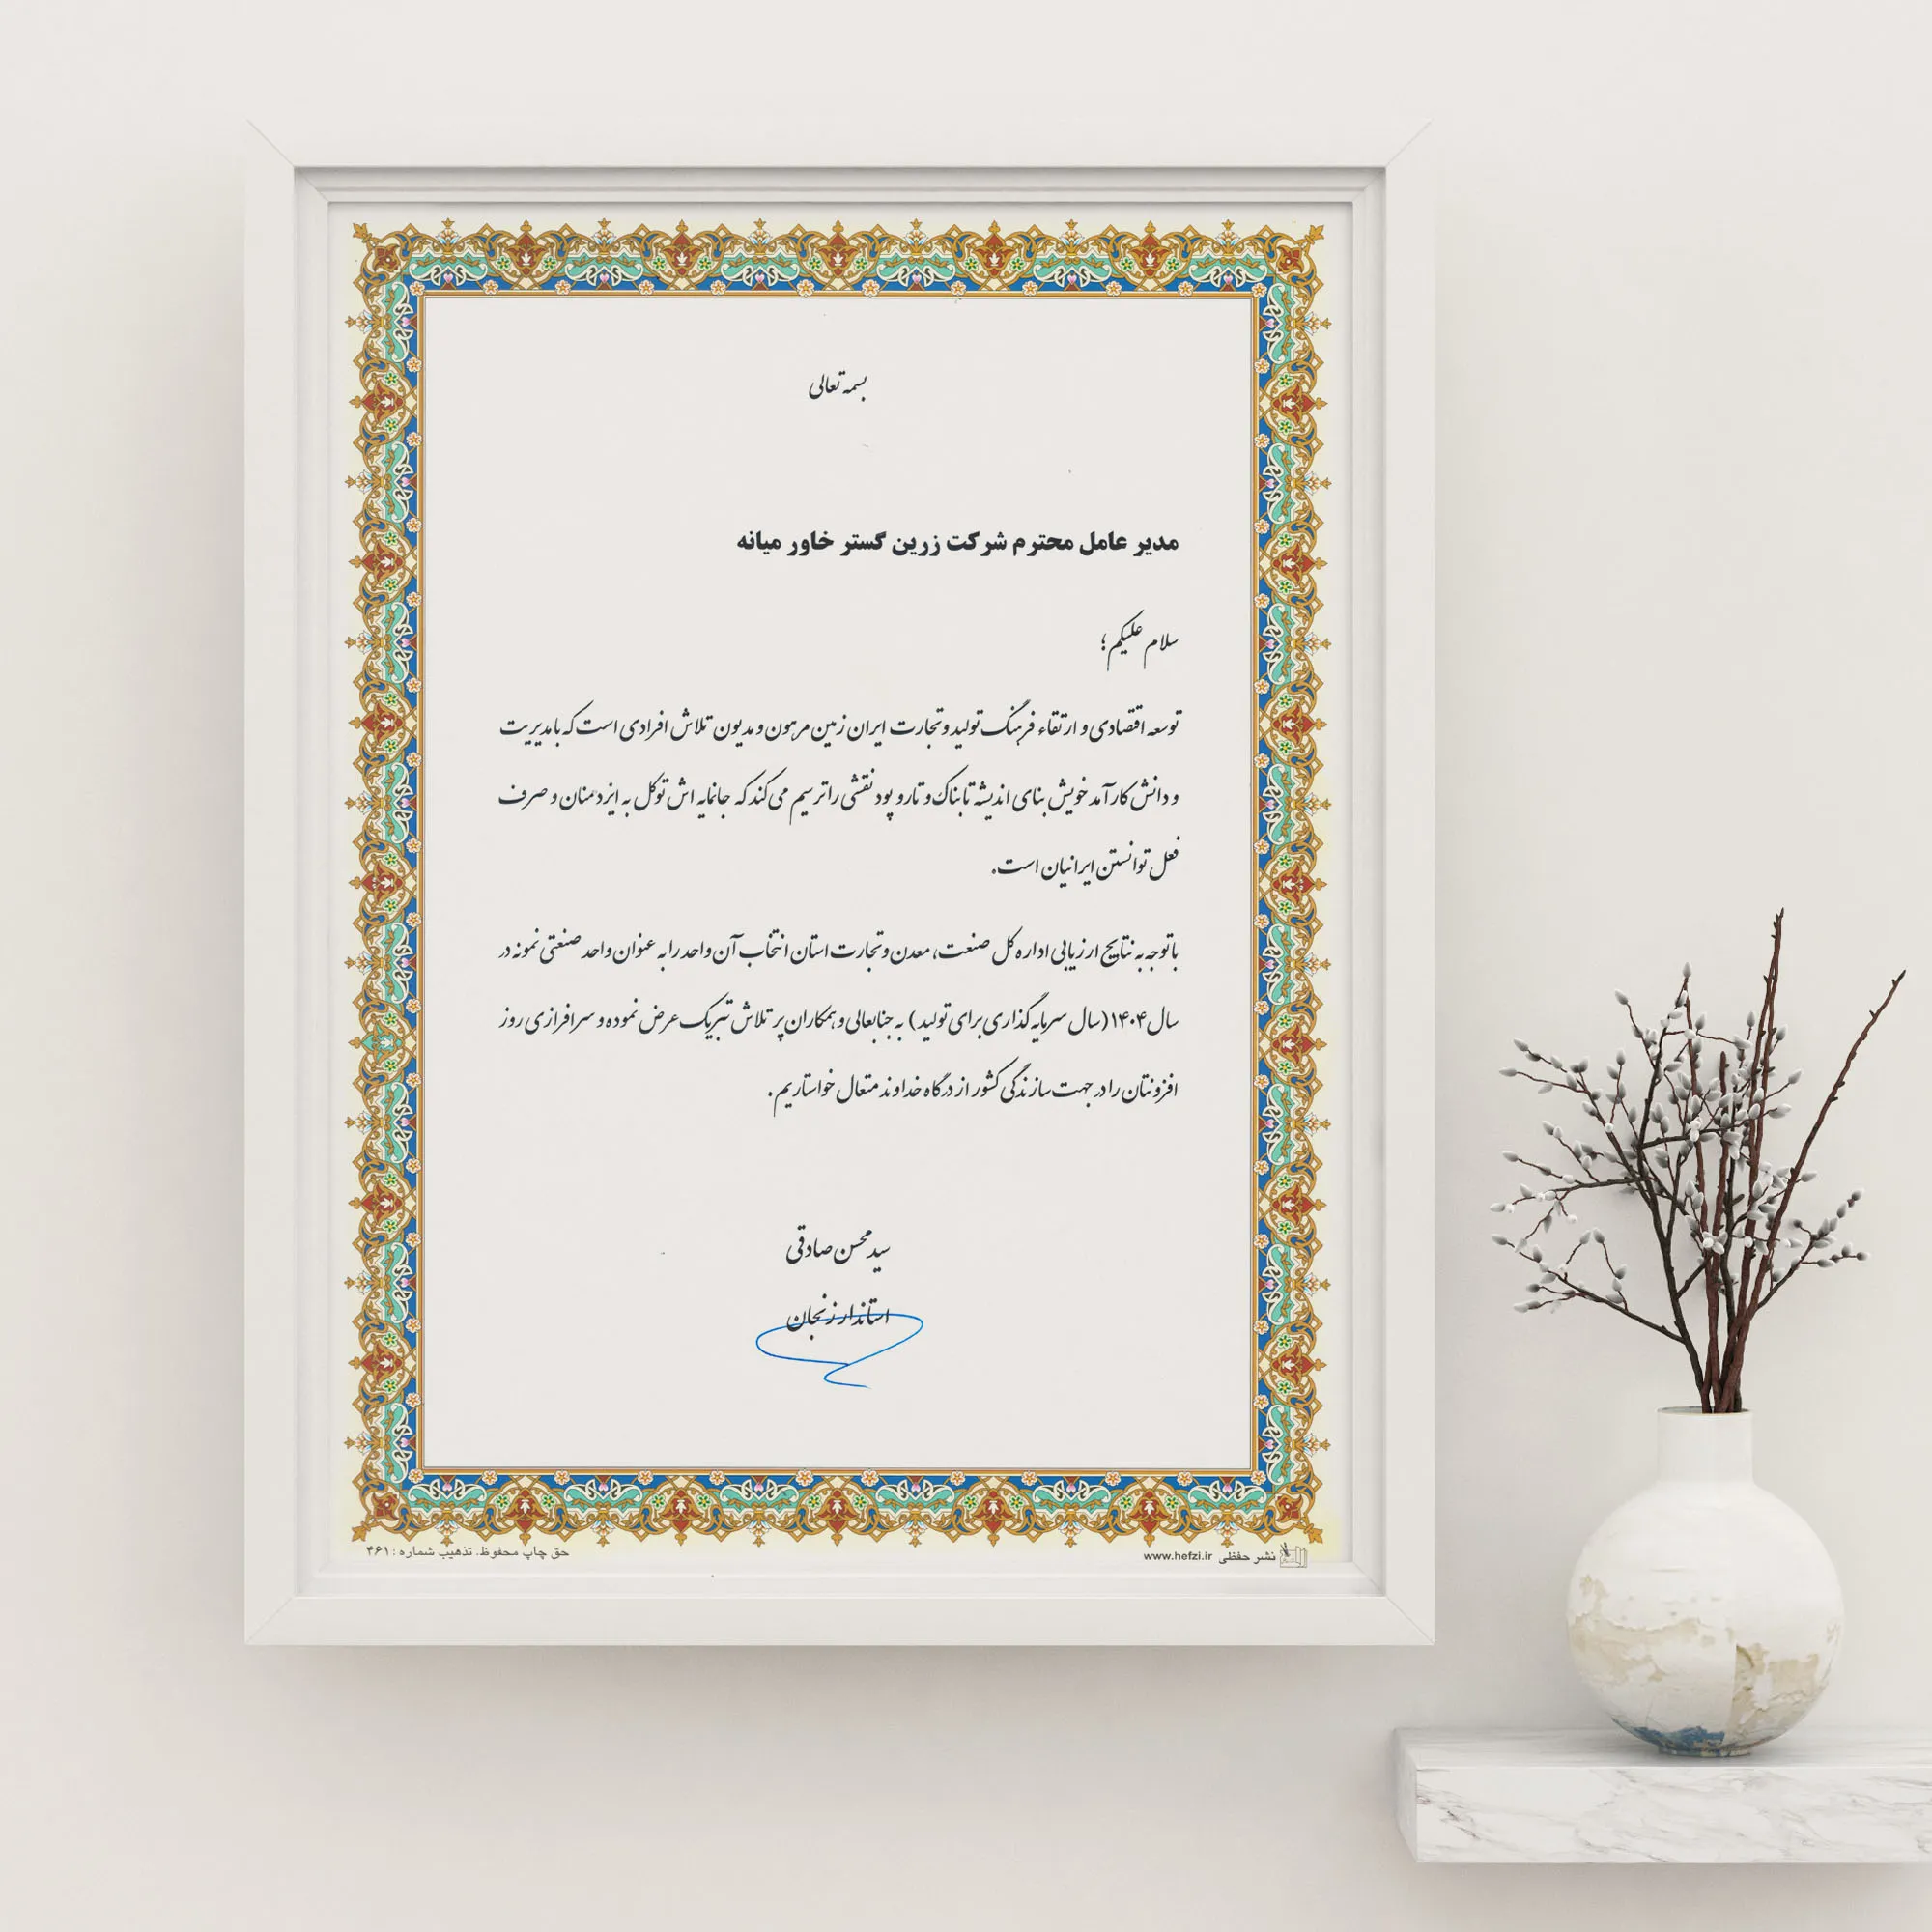 بسمه تعالی
مدیر عامل محترم شرکت زرین گستر خاور میانه
سلام علیکم؛
توسعه اقتصادی و ارتقاء فرهنگ تولید و تجارت ایران زمین مرهون و مدیون تلاش افرادی است که با مدیریت
و دانش کارآمد خویش بنای اندیشه تابناک و تار و پود نقشی را ترسیم می کند که جانمایه اش توکل به ایزدمنان و صرف
فعل توانستن ایرانیان است.
با توجه به نتایج ارزیابی اداره کل صنعت، معدن و تجارت استان انتخاب آن واحد را به عنوان واحد صنعتی نمونه در
سال ۱۴۰۴ (سال سرمایه گذاری برای تولید) به جنابعالی و همکاران پر تلاش تبریک عرض نموده و سرافرازی روز
افزونتان را در جهت سازندگی کشور از درگاه خداوند متعال خواستاریم.
سید محسن صادقی
استاندار زنجان
نشر حفظی www.hefzi.ir
حق چاپ محفوظ. تذهیب شماره: ۴۶۱